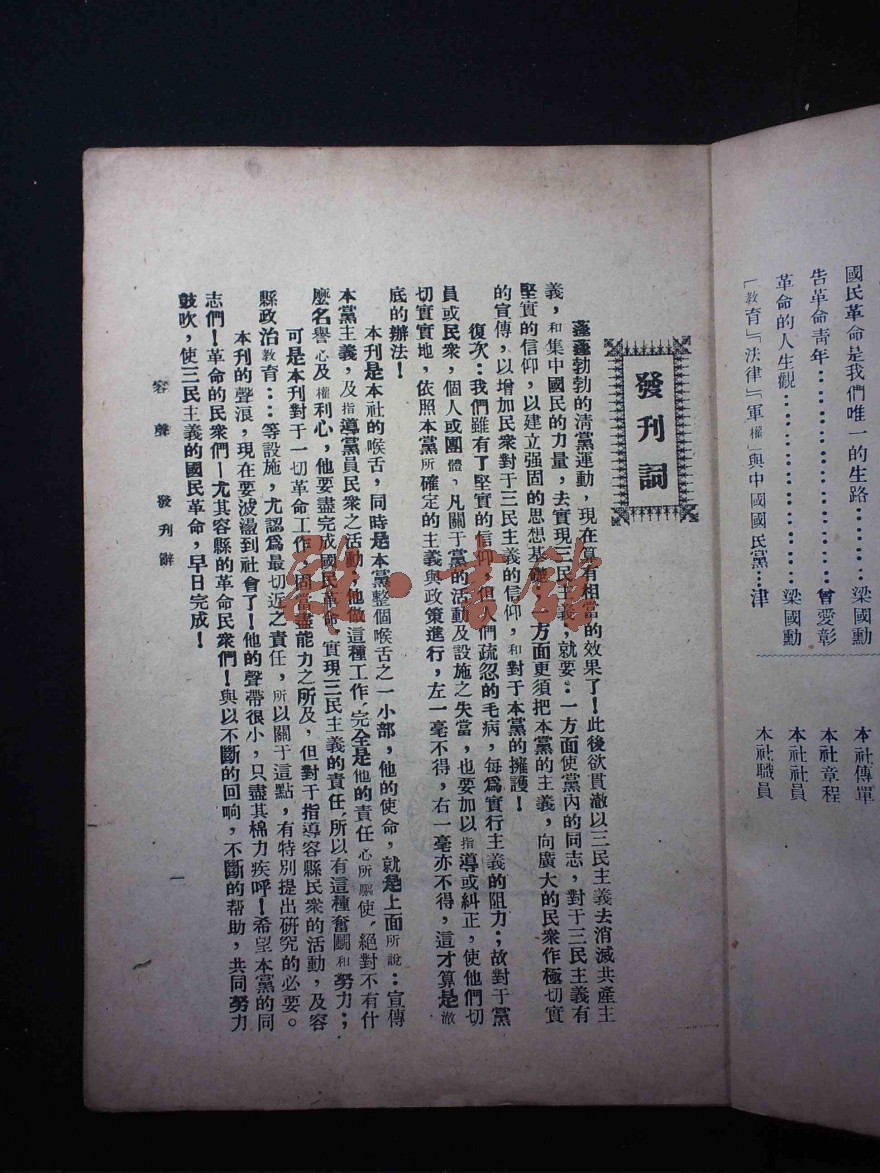 國民革命是我們唯一的生路………梁國勳
告革命靑年………………曾愛彰
革命的人生觀………………梁國勳
「敎育」『法律』『軍權』與中國國民黨…津
本社傳單
本社章程
本社社員
本社職員
發刊詞
蓬蓬勃勃的淸黨運動，現在算有相當的效果了！此後欲貫澈以三民主義去消滅共產主
義，和集中國民的力量，去實現三民主義，就要：一方面使黨內的同志，對于三民主義有
堅實的信仰，以建立强固的思想基礎，方面更須把本黨的主義，向廣大的民衆作極切實
的宣傳，以增加民衆對于三民主義的信仰，和對于本黨的擁護！
復次：我們雖有了堅實的信仰，但人們疏忽的毛病，每爲實行主義的阻力；故對于黨
員或民衆，個人或團體，凡關于黨的活動及設施之失當，也要加以指導或糾正，使他們切
切實實地，依照本黨所確定的主義與政策進行，左一毫不得，右一毫亦不得，這才算是澈
底的辦法！
本刊是本社的喉舌，同時是本黨整個喉舌之一小部，他的使命，就是上面所說：宣傳
本黨主義，及指導黨員民衆之活動，他做這種工作，完全是他的責任心所驅使，絕對不有什
麼名譽心及權利心，他要盡完成國民革命，實現三民主義的責任，所以有這種奮鬭和努力；
可是本刊對于一切革命工作，固當盡能力之所及，但對于指導容縣民衆的活動，及容
縣政治敎育：：等設施，尤認爲最切近之責任，所以關于這點，有特別提出硏究的必要。
本刊的聲浪，現在要波盪到社會了！他的聲帶很小，只盡其棉力疾呼！希望本黨的同
志們！革命的民衆們—尤其容縣的革命民衆們！與以不斷的回响，不斷的帮助，共同努力
鼓吹，使三民主義的國民革命，早日完成！
容聲 發刊辭
一
雜·書館